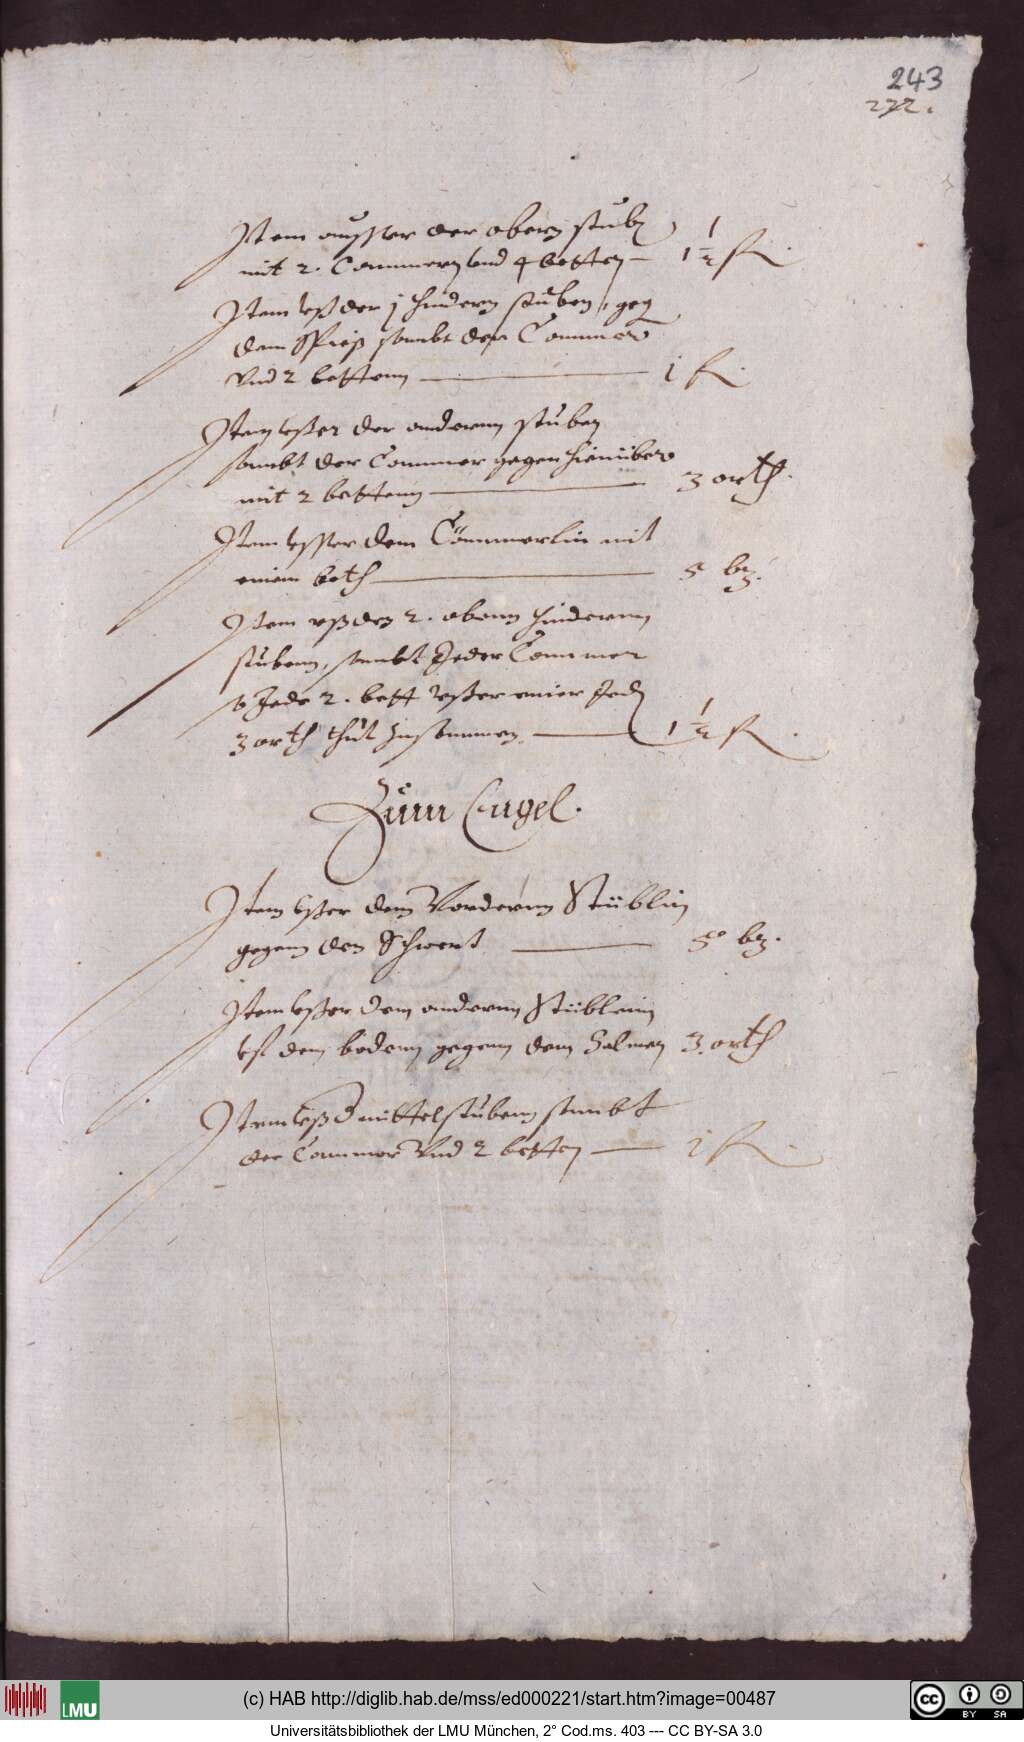 243
272.
Item ausser der obern stubē
mit 2. Cammern vnd 4 betten — 1 1/2 fl.
Item vß der j hindern stuben, gegē
dem Spieß sambt der Cammer
Vnd 2 bettenn — 1 fl.
Item vßer der anderm stuben
sambt der Cammer gegen hinüber
mit 2 bettenn — 3 orth.
Item vsser dem Cämmerlin mit
einem beth — 5 bz.
Item vß den 2. obern hindernn
stubenn, sambt Jeder Cammer
Jede 2. bett vßer einer Jedē
3 orth thut zusammen — 1 1/2 fl.
Zum Engel.
Item vßer dem Vordernn Stüblin
gegem den Schwert — 5 bz.
Item vßer dem andernn Stüblein
vf dem bodenn gegem dem Salmen 3 orth
Item vß d mittelstubenn sambt
der Cammer Vnd 2 betten — 1 fl.
LMU
(c) HAB http://diglib.hab.de/mss/ed000221/start.htm?image=00487
Universitätsbibliothek der LMU München, 2° Cod.ms. 403 --- CC BY-SA 3.0
cc BY SA